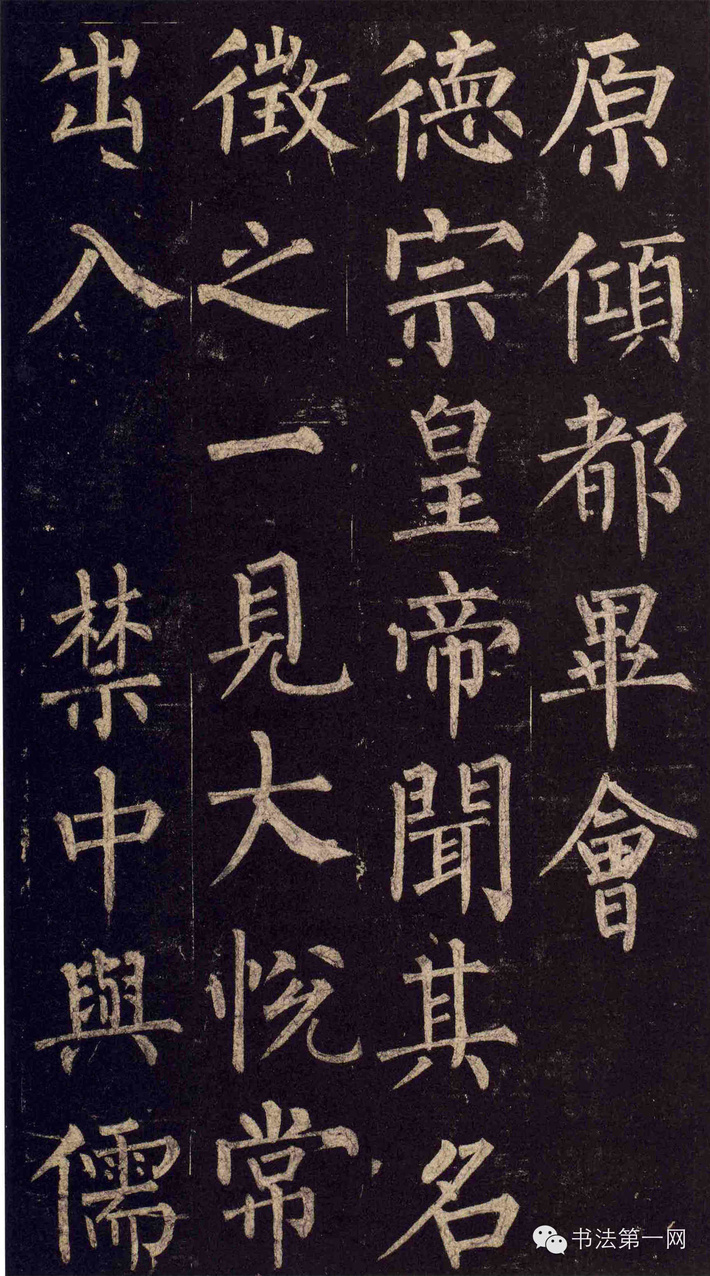 原傾都畢會
徳宗皇帝聞其名
徴之一見大悦常
出入禁中與儒
书法第一网